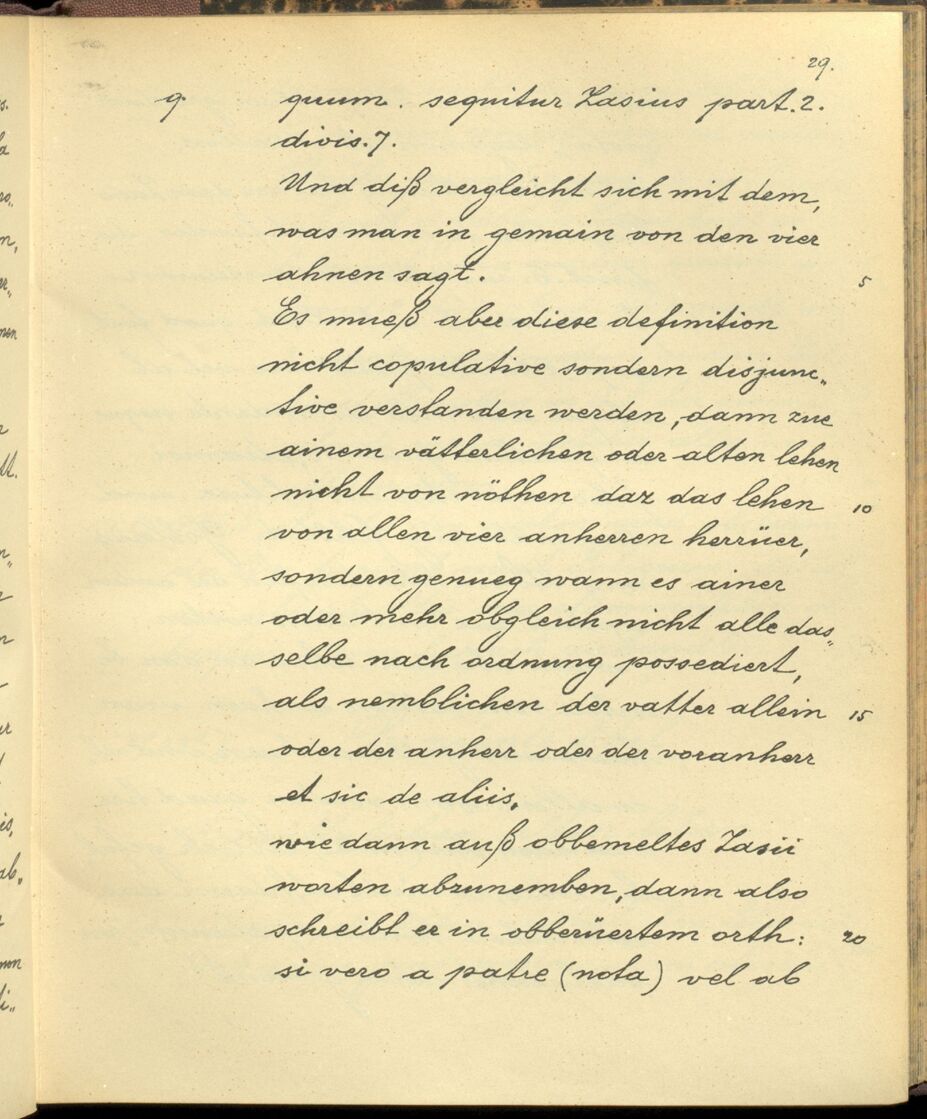 29.
g. quum. sequitur Zasius part. 2.
divis. 7.
Und diß vergleicht sich mit dem,
was man in gemain von den vier
ahnen sagt. 5
Es mueß aber diese definition
nicht copulative sondern disjunc„
tive verstanden werden, dann zue
ainem vätterlichen oder alten lehen
nicht von nöthen daz das lehen 10
von allen vier anherren herrüer,
sondern genueg wann es ainer
oder mehr obgleich nicht alle das„
selbe nach ordnung possediert,
als nemblichen der vatter allein 15
oder der anherr oder der voranherr
et sic de aliis.
wie dann auß obbemeltes Zasii
worten abzunemben, dann also
schreibt er in obberüertem orth: 20
si vero a patre (nota) vel ab